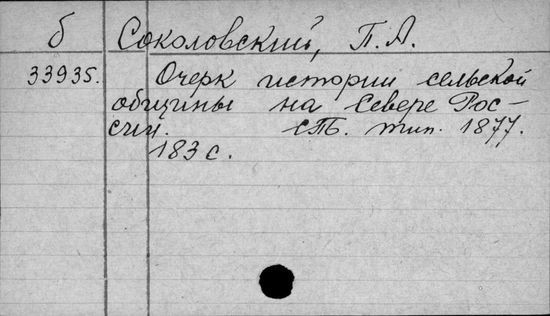 б Соколовский, П.А.
33935. Очерк истории сельской
общины на Севере Рос-
сии. СПб. тип. 1877.
183 с.